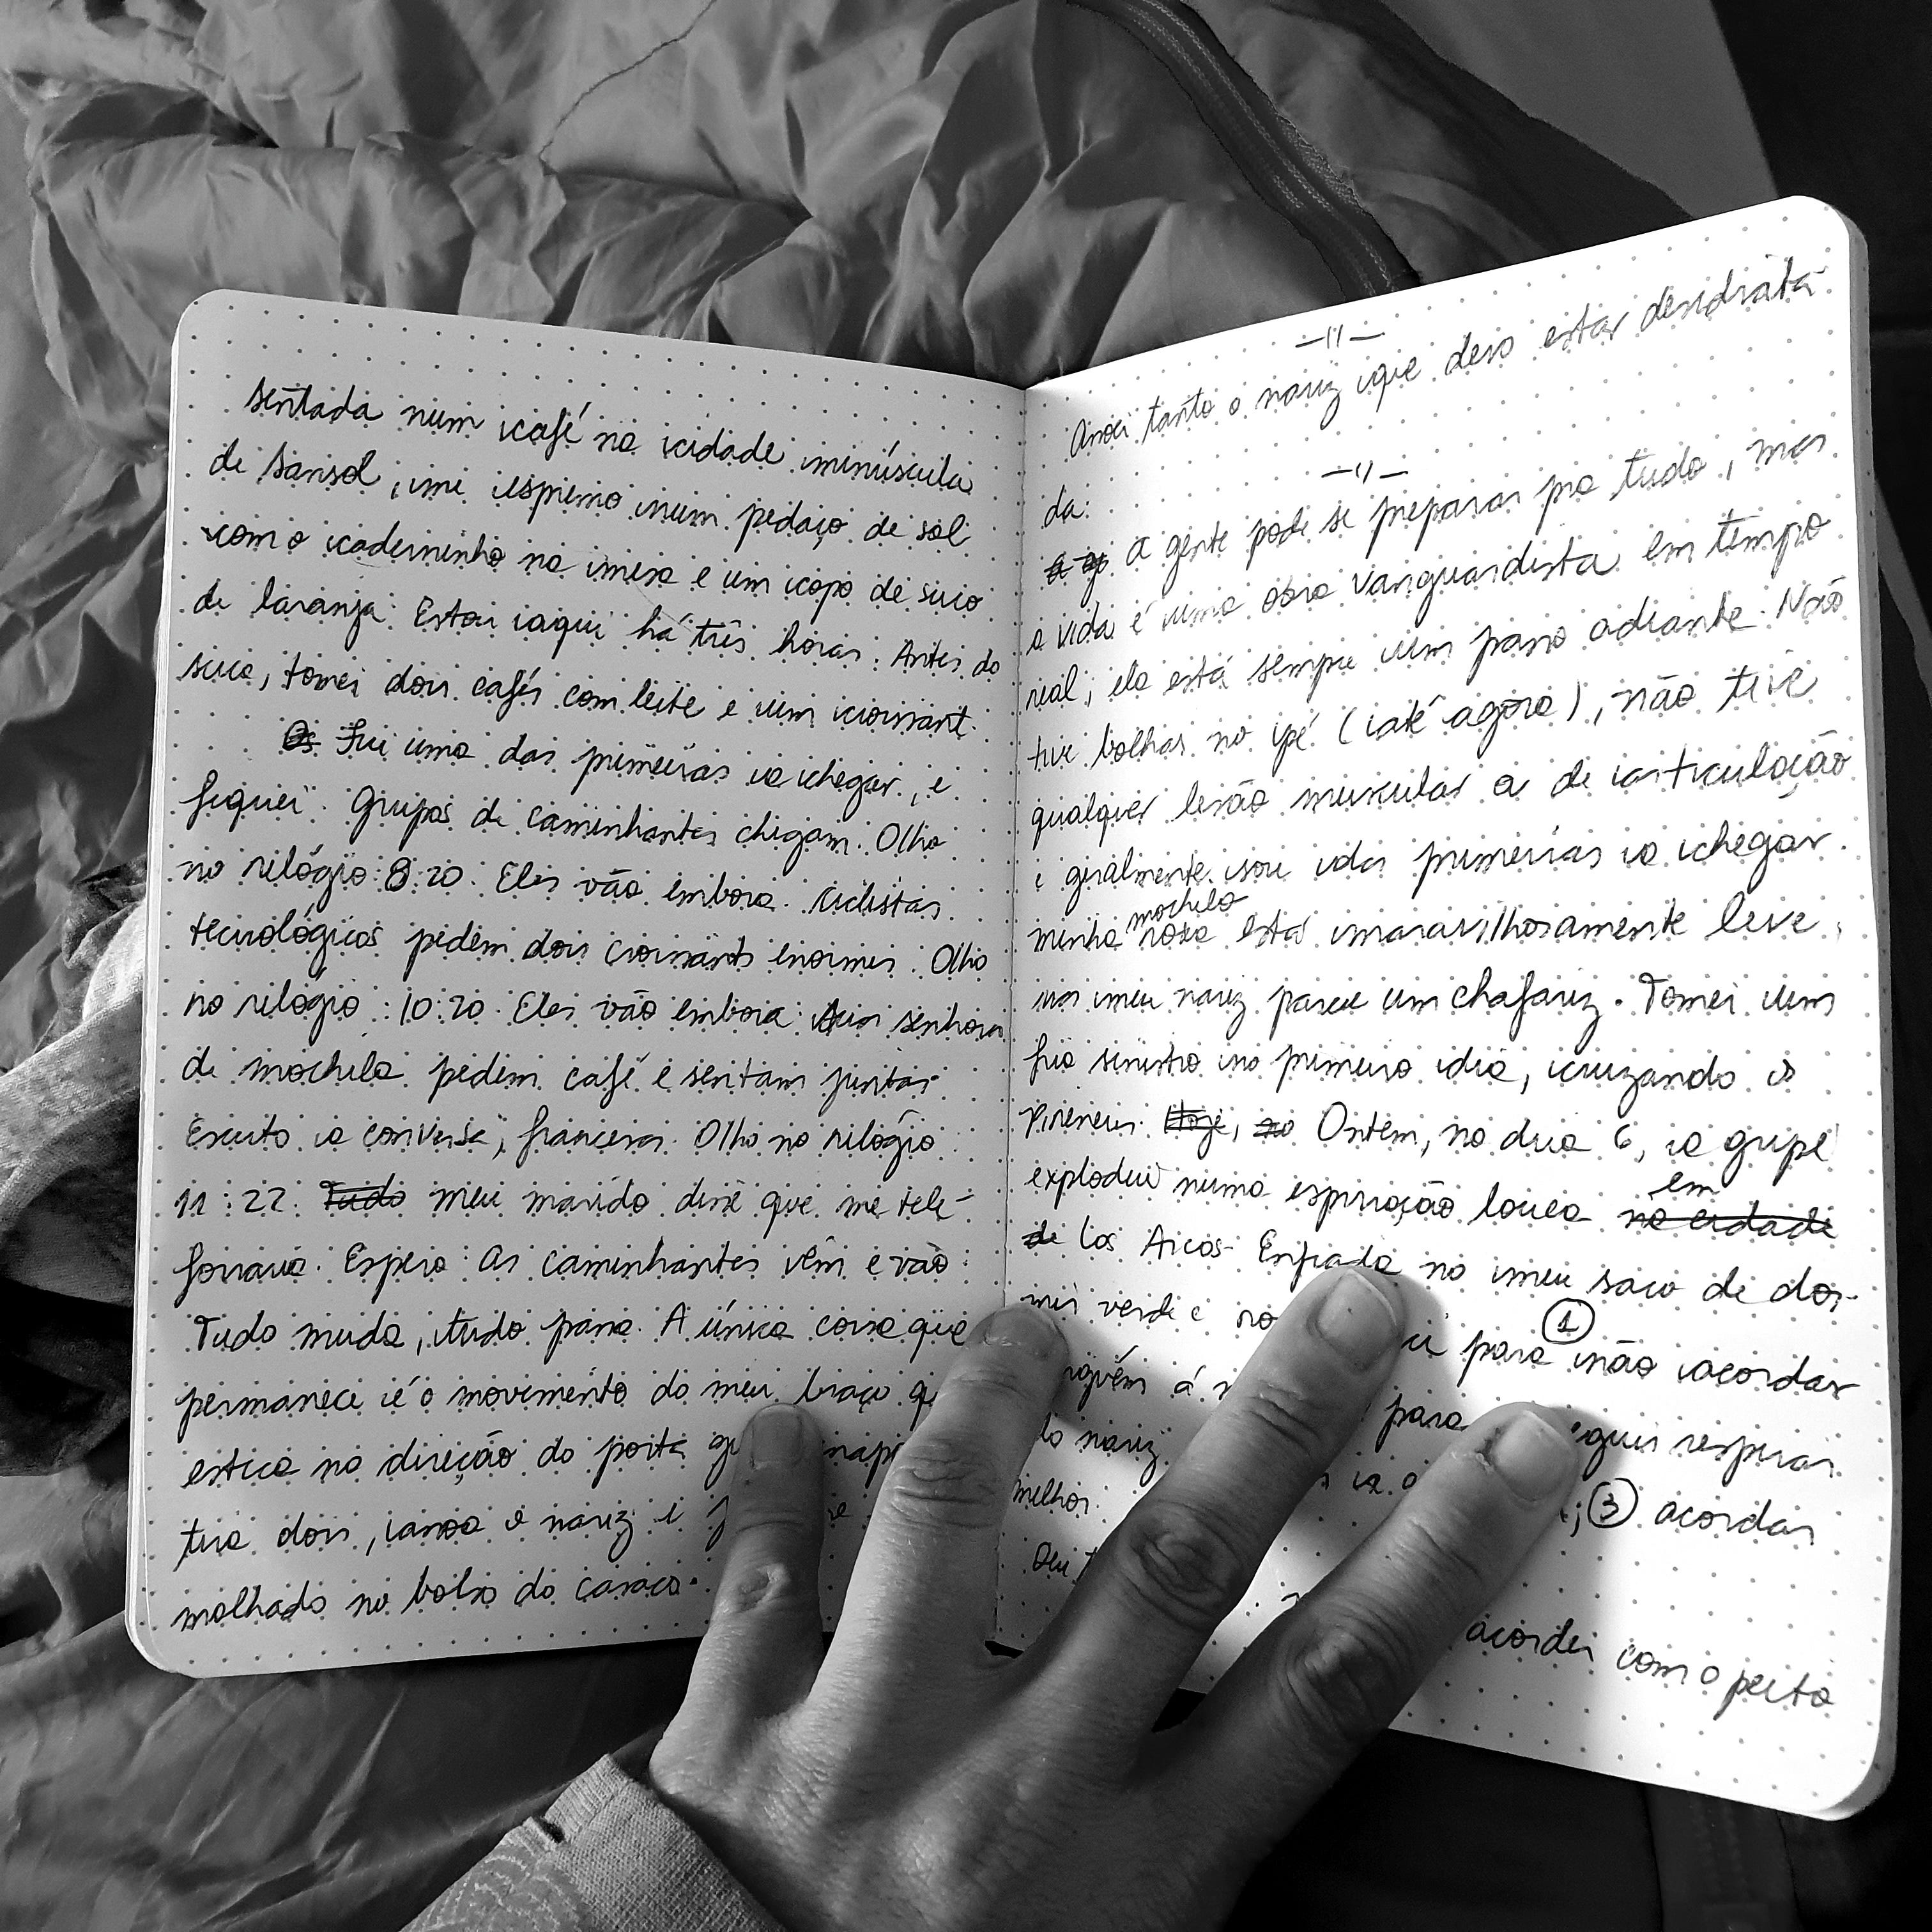 Sentada num café na cidade minúscula
de Sansol, me espremo num pedaço de sol
com o caderninho na mesa e um copo de suco
de laranja. Estou aqui há três horas. Antes do
suco, tomei dois cafés com leite e um croissant.
Fui uma das primeiras a chegar, e
fiquei. Grupos de caminhantes chegam. Olho
no relógio: 8:20. Eles vão embora. Ciclistas
tecnológicos pedem dois croissants enormes. Olho
no relógio: 10:20. Eles vão embora. senhoras
de mochila pedem café e sentam juntas.
Escuto a conversa, francesas. Olho no relógio
11:22. Tudo meu marido disse que me tele-
fonaria. Espero. As caminhantes vêm e vão.
Tudo muda, tudo passa. A única coisa que
permanece é o movimento do meu braço
estica na direção do porta
tira dois, assoa o nariz e
molhado no bolso do casaco.
—11—
Assoei tanto o nariz que devo estar desidrata-
da.
—11—
A gente pode se preparar pra tudo, mas
a vida é uma obra vanguardista em tempo
real, ela está sempre um passo adiante. Não
tive bolhas no pé (até agora), não tive
qualquer lesão muscular o de articulação
e geralmente sou das primeiras a chegar.
mochila
minha está maravilhosamente leve,
mas meu nariz parece um chafariz. Tomei um
frio sinistro no primeiro dia, cruzando os
Pireneus. Hoje, no Ontem, no dia 6, a gripe
explodiu numa espiração louca na cidade
em
de Los Arcos. Enfiada no meu saco de dor-
mir verde e para ① não acordar
para respirar
do nariz
melhor. ; ③ acordar
acordei com o peito